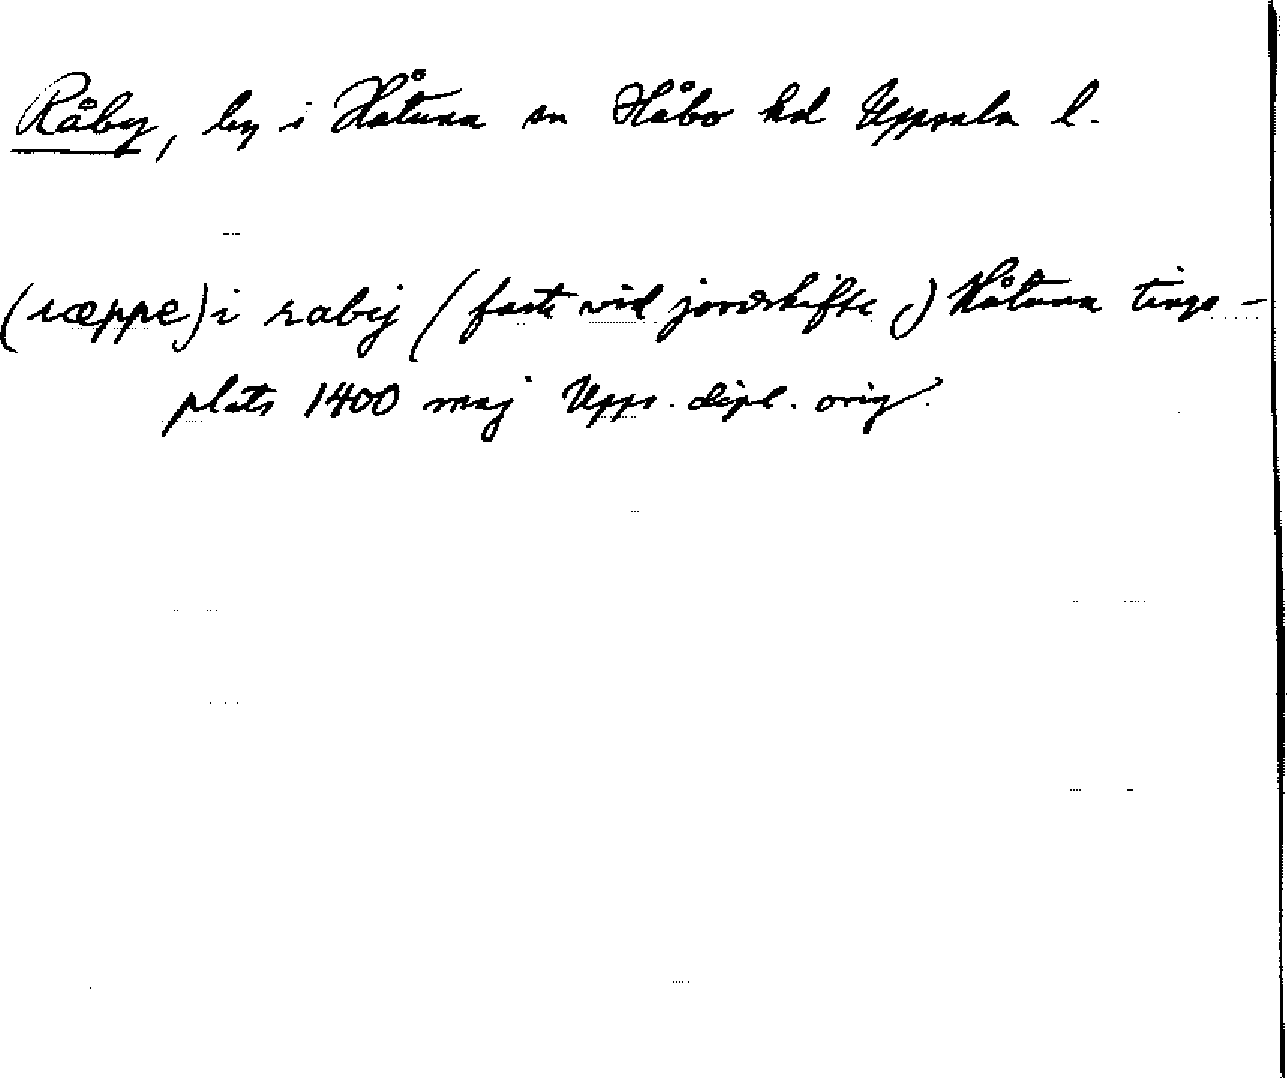 Råby, by i Håtuna sn Håbo hd Uppsala l.
(ræppe) i rabij (faste vid jordskifte,) Håtuna tings-
plats 1400 maj Upps. dipl. orig.